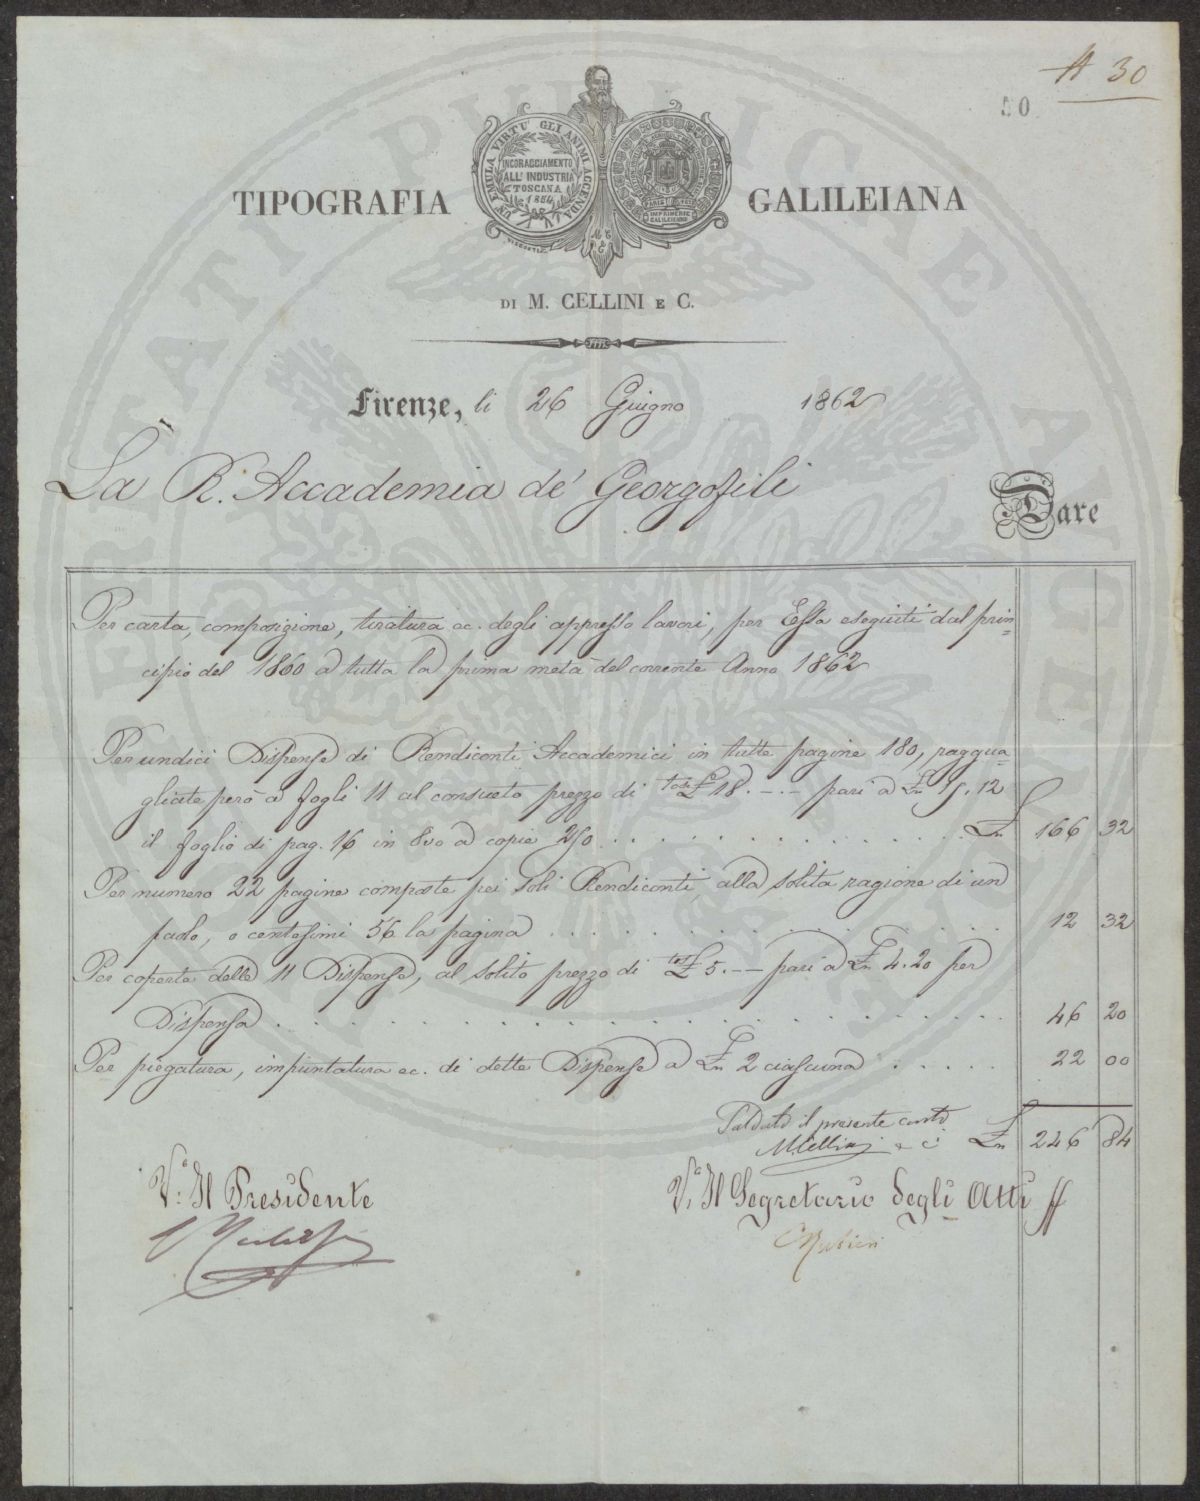 A 30
50
UN EMULA VIRTU' GLI ANIMI ACCENDA
INCORAGGIAMENTO
ALL' INDUSTRIA
TOSCANA
1854
PARIS
IMPRIMERIE
GALILEIENNE
TIPOGRAFIA GALILEIANA
DI M. CELLINI E C.
Firenze, li 26 Giugno 1862
La R. Accademia de' Georgofili
Dare
Per carta, composizione, tiratura ec. degli appresso lavori, per Essa eseguiti dal prin=
cipio del 1860 a tutta la prima metà del corrente Anno 1862
Per undici Dispense di Rendiconti Accademici in tutte pagine 180, raggua=
gliate però a fogli 11 al consueto prezzo di tos £ 18. -.- pari a £n 15. 12
il foglio di pag. 16 in 8vo a copie 250 . . . £n 166 32
Per numero 22 pagine composte pei soli Rendiconti, alla solita ragione di un
paolo, o centesimi 56 la pagina . . . 12 32
Per coperte delle 11 Dispense, al solito prezzo di tos £ 5. -- pari a £n 4. 20 per
Dispensa . . . 46 20
Per piegatura, impuntatura ec. di dette Dispense a £n 2 ciascuna . . . 22 00
Saldato il presente conto £n 246 84
M. Cellini e C.
V.° Il Presidente
V.° Il Segretario degli Atti ff